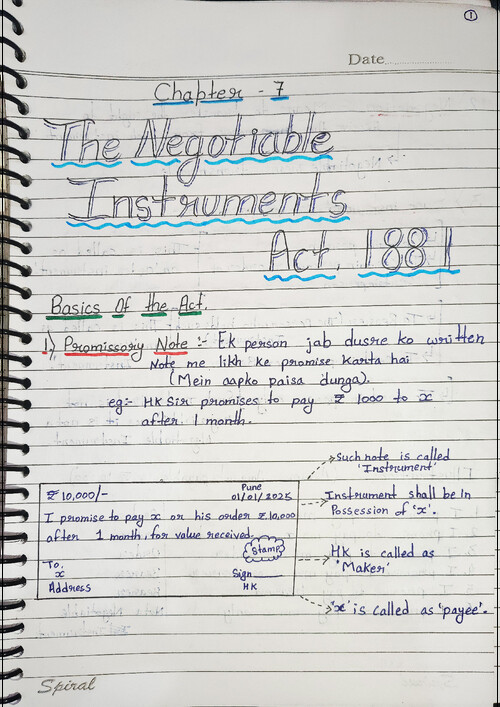 1
Date
Chapter - 7
The Negotiable
Instruments
Act, 1881
Basics Of the Act.
1) Promissory Note :- Ek person jab dusre ko written
Note me likh ke promise karta hai
(Mein aapko paisa dunga).
eg:- HK Sir promises to pay ₹ 1000 to x
after 1 month.
Such note is called
'Instrument'
₹ 10,000/-
Pune
01/01/2025
Instrument shall be in
Possession of 'x'.
I promise to pay x or his order ₹ 10,000
after 1 month, for value received.
Stamp
HK is called as
'Maker'
To,
x
Address
Sign
HK
'x' is called as 'payee'.
Spiral